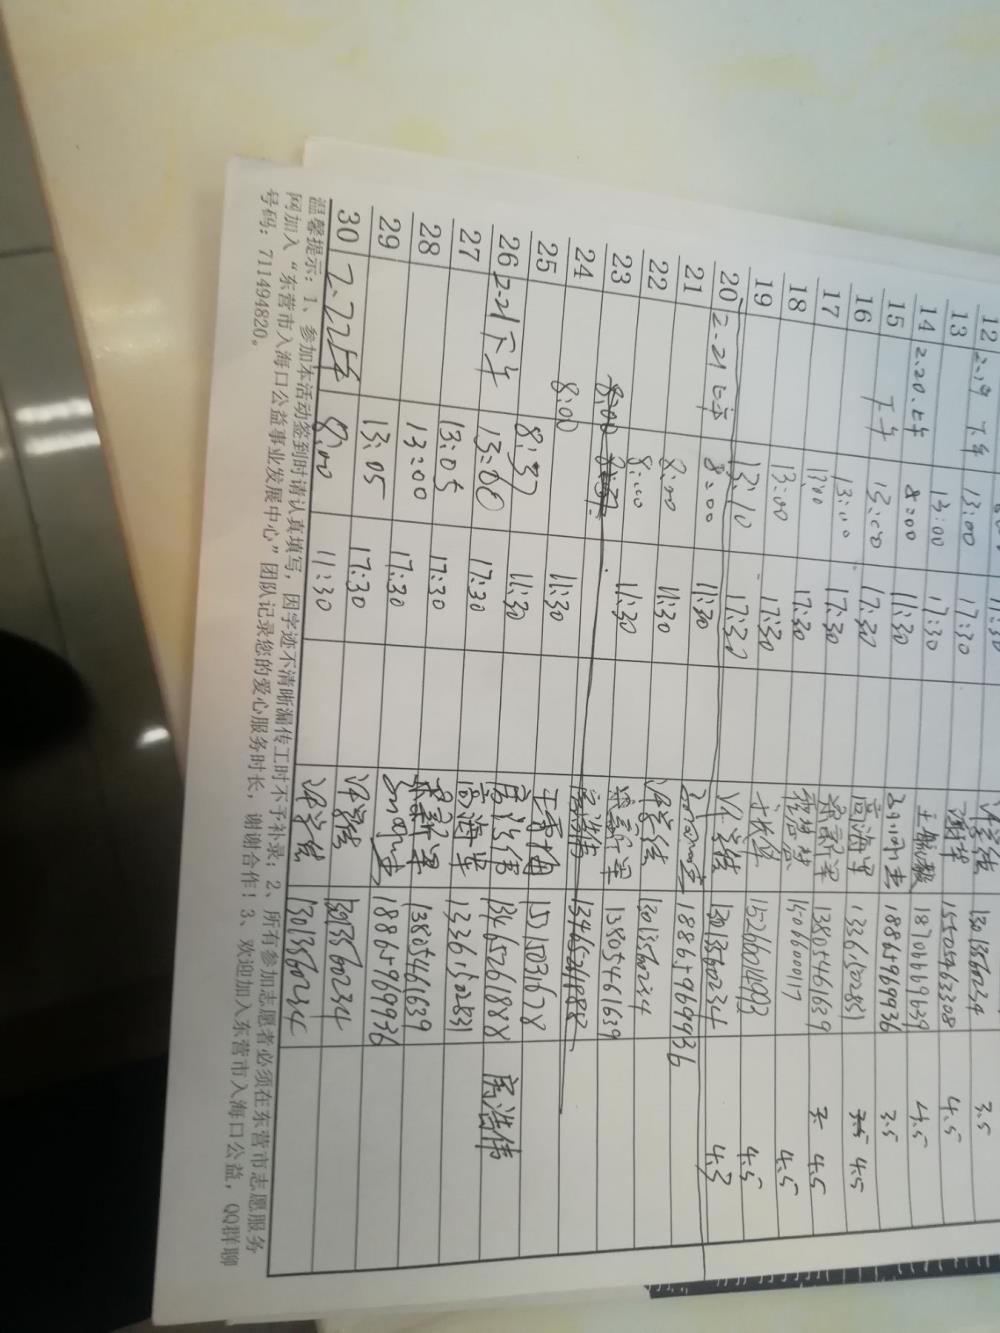 12 2.19 下午 13:00 17:30 13013560234 3.5
13 13:00 17:30 15505463308 4.5
14 2.20.上午 8:00 11:30 王 18706669639 4.5
15 下午 13:00 17:30 18865969936 3.5
16 13:00 17:30 高海军 13361502831 4.5
17 13:00 17:30 梁新军 13805461639 4.5
18 13:00 17:30 15006600117 4.5
19 13:10 17:30 15266014993 4.5
20 2.21上午 8:00 11:30 许学信 13013560234 4.3
21 8:00 11:30 18865969936
22 8:00 11:30 许学信 13013560234
23 8:00 梁新军 13805461639
24 8:00 11:30 高浩伟 13465261888
25 8:30 11:30 15315103678
26 2.21下午 13:00 17:30 高浩伟 13465261888 高浩伟
27 13:05 17:30 高海军 13361502831
28 13:00 17:30 梁新军 13805461639
29 13:05 17:30 18865969936
30 2.22上午 8:00 11:30 许学信 13013560234
许学信 13013560234
温馨提示：1、参加本活动签到时请认真填写，因字迹不清晰漏传工时不予补录；2、所有参加志愿者必须在东营市志愿服务
网加入“东营市入海口公益事业发展中心”团队记录您的爱心服务时长，谢谢合作！3、欢迎加入东营市入海口公益，QQ群聊
号码：711494820。